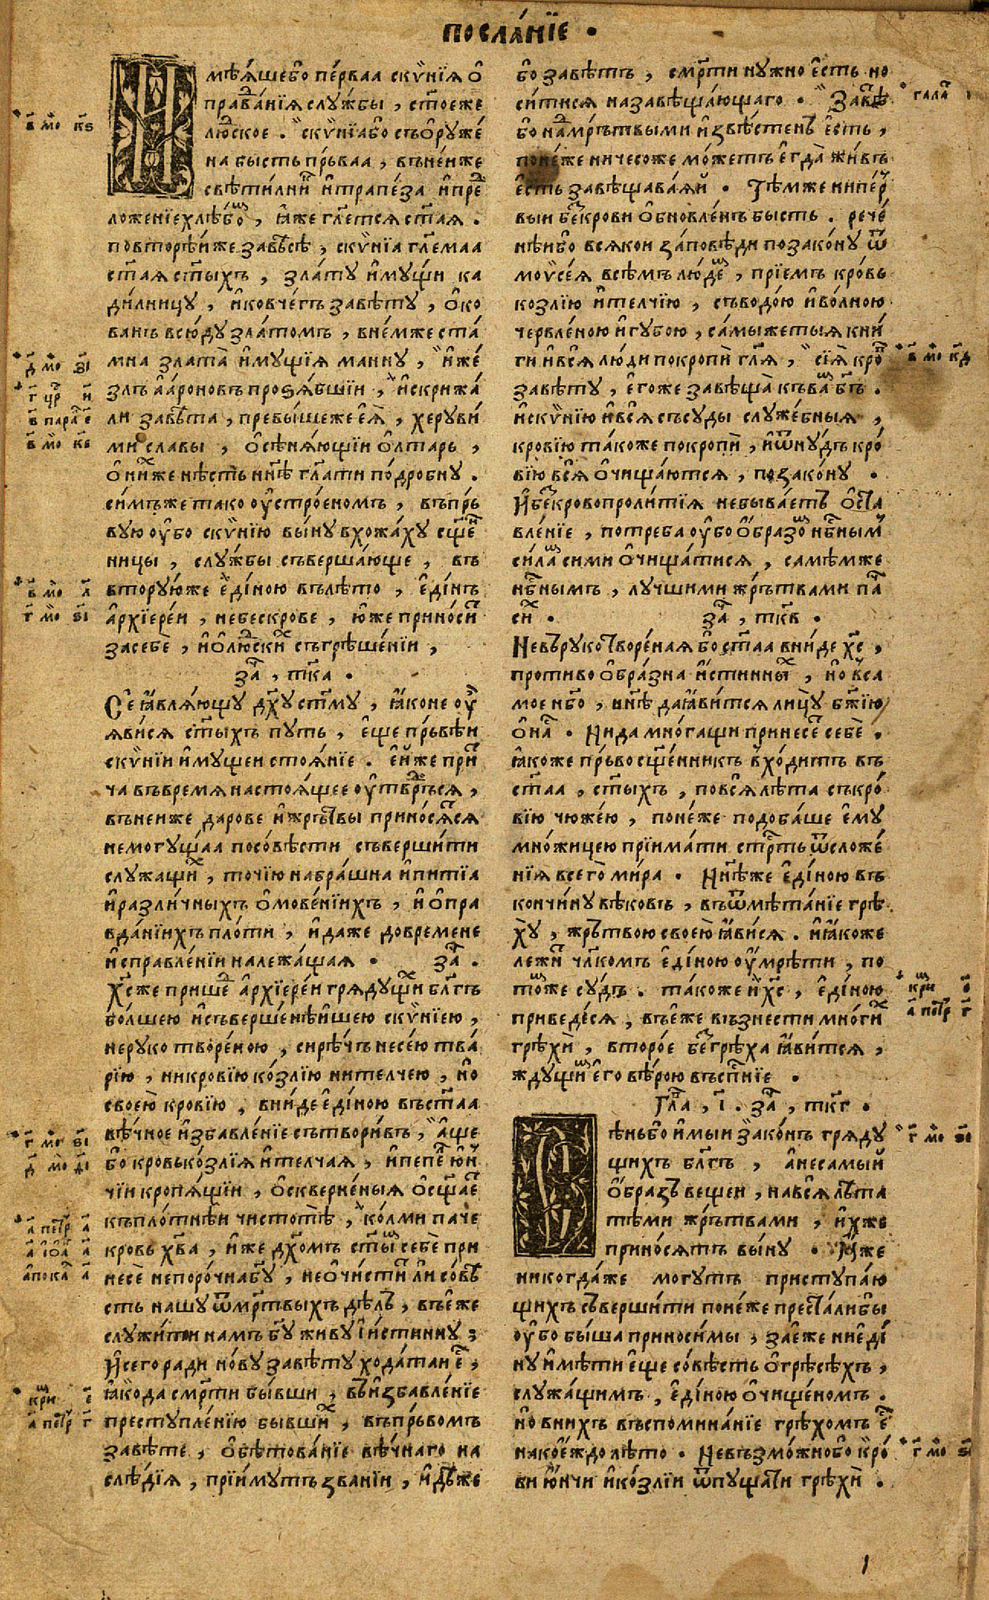 посла́нїе .
И
мѣѧ́шебо пе́рваа скѵ́нїѧ о҆
правда́нїѧ слꙋ́жбы , ст҃оеже
людское . скѵ́нїабо съѡрꙋже́
на бысть пръ́ваа , вънейже
свѣти́лникъ и҆трапе́за и҆пред
ложе́нїехлѣбом , ꙗ҆́же гл҃етсѧ ст҃аѧ .
повторѣ́йже завѣсѣ , скѵ́нїа гл҃емаа
ст҃аѧ ст҃ыхъ , зла́тꙋ и҆мꙋ́щи ка
ди́лницꙋ , и҆ковче́гъ завѣ́тꙋ , о҆ко
ванъ всю́дꙋ зла́томъ , вне́мже ста́
мна злата̀ и҆мꙋ́щїѧ маннꙋ , и҆же́
злъ а҆аро́новъ проѕѧ́бшїи , и҆скрижа́
ли завѣта , превы́шеже еѧ̀ , херꙋви́
ми славы , о҆сѣнѧ́ющїи о҆лта́рь ,
о҆ни́хже нѣ́сть нн҃ѣ гл҃ати подро́бнꙋ .
си́мъже тако оу҆стро́еномъ , въпръ́
вꙋю оу҆бо скѵ́нїю вы́нꙋ вхожа́хꙋ сщ҃е́н
ницы , слꙋ́жбы съверша́юще , въ
вторꙋ́юже е҆ди́ною въ лѣто , е҆ди́нъ
а҆рхїере́и , небескро́ве , ю҆́же прино́сит
засебѐ , и҆о҆людски́х съгрѣше́нїи ,
за҃ , тк҃а .
Се ꙗ҆влѧ́ющꙋ дх҃ꙋ ст҃мꙋ , ꙗ҆́коне оу҆
ꙗви́сѧ ст҃ыхъ пꙋть , е҆ще пръ́вѣи
скѵ́нїи и҆мꙋ́щеи стоѧ́нїе . е҆́йже при́т
ча въвре́мѧ настоѧ́щее оу҆твръди́сѧ ,
въне́йже да́рове и҆же́рътвы прино́сѧтсѧ
немогꙋ́щаа посо́вѣсти съверши́ти
слꙋжа́щих , то́чїю на бра́шна и҆пи́тїа
и҆разли́чныхъ о҆мове́нїихъ , и҆о҆пра
вда́нїихъ пло́ти , и҆да́же довре́мене
и҆справле́нїи належа́щаѧ . за҃ .
Х҃сже прише́д а҆рхїере́и грѧдꙋ́щих бл҃гъ
бо́лшею и҆съверше́нѣишею скѵ́нїею ,
нерꙋко творе́ною , си́рѣчь несе́ю тва́
рїю , никро́вїю ко́злїю нителче́ю , но̀
свое́ю кро́вїю , вни́де е҆ди́ною въст҃аа
вѣ́чное и҆збавле́нїе сътвори́въ , а҆́ще
бо кровькозлїѧ и҆телчаѧ , и҆пе́пел ю҆ни
чїи кропѧ́щїи , о҆скверне́ныѧ о҆сщ҃ает
къпло́тнѣи чистотѣ̀ , ко́лми па́че
кровь х҃ва , и҆же дх҃омъ ст҃ы́м себѐ при
несѐ непоро́чна бг҃ꙋ , неѡчи́стит ли со́вѣ
сть нашꙋ ѿме́ртвыхъ дѣлъ , въе́же
слꙋжи́ти намъ бг҃ꙋ живꙋ и҆и҆́стиннꙋ ;
И҆сего ради но́вꙋ завѣ́тꙋ хода́таи е҆́ст ,
ꙗ҆́кода сме́рти бы́вши , въи҆збавле́нїе
престꙋпле́нїю бывши́х , въпръ́вомъ
завѣ́те , о҆бѣтова́нїе вѣ́чнаго на
слѣ́дїѧ , прїи́мꙋтъ зва́нїи , и҆дѣ́же
бо завѣ́тъ , сме́рти нꙋ́жно е҆сть но
си́тисѧ назавѣща́ющаго . завѣ́т
бо на́дмръ́твыми и҆звѣ́стенъ е҆́сть ,
поне́же ничесо́же мо́жетъ е҆гда̀ жи́въ
е҆́сть завѣщава́ѧй . тѣ́мже нипе́р
выи без крови о҆бновле́нъ бысть . рече́
нѣибо всѧ́кои за́повѣди позако́нꙋ ѿ
моѵсе́ѧ всѣ́мъ лю́дем , прїе́мъ кро́вь
ко́злїю и҆те́лчїю , съводо́ю и҆во́лною
червле́ною и҆гꙋбою , са́мыжетыѧ кни́
ги и҆всѧ лю́ди покропѝ гл҃ѧ , сїѧ̀ кро́в
завѣ́тꙋ , е҆го́же завѣща̀ къва́м бг҃ъ .
и҆скѵ́нїю и҆всѧ съсꙋ́ды слꙋже́бныѧ ,
кро́вїю та́коже покропѝ , и҆ѿнꙋ́дъ кро́
вїю всѧ о҆чища́ютсѧ , позако́нꙋ .
И҆без кровопроли́тїѧ небыва́етъ о҆ста
вле́нїе , потре́ба оу҆бо о҆́бразом нб҃ным
си́лам сими о҆чища́тисѧ , самѣ́мже
нб҃нымъ , лꙋ́чшими же́рътвами па́ч
си́х . за҃ , тк҃в .
Невърꙋкотворе́наѧ бо ст҃аа вни́де х҃с ,
противо о҆бра́зна и҆́стинных , но̀ вса
мое нб҃о , нн҃ѣ да ꙗ҆ви́тсѧ лицꙋ̀ бж҃їю
о҆на́с . Нида мно́гащи принесе́т себѐ .
ꙗ҆́коже пръ́во сщ҃е́нникъ вхо́дитъ въ
ст҃аа , ст҃ыхъ , повсѧ́лѣта съкро́
вїю чюже́ю , поне́же подоба́ше е҆мꙋ̀
мно́жицею прїима́ти стр҃ть ѿсложе́
нїѧ всего̀ ми́ра . Нн҃ѣже е҆ди́ною въ
кончи́нꙋ вѣко́въ , въѿмѣта́нїе грѣ
хꙋ̀ , же́ртвою свое́ю ꙗ҆ви́сѧ . и҆ꙗ҆́коже
лежи́т чл҃комъ е҆ди́ною оу҆мрѣ́ти , по
то́мже сꙋ́дъ . та́коже и҆х҃с , е҆ди́ною
приведе́сѧ , въе́же възнести мно́гих
грѣхѝ , второ́е без грѣха ꙗ҆ви́тсѧ ,
ждꙋ́щим е҆го вѣ́рою въсп҃нїе .
Гла҃ , і҃ . за҃ , тк҃г .
С
ѣньбо и҆мы́и зако́нъ грѧдꙋ́
щихъ бл҃гъ , а҆несамы́й
о҆́бразъ веще́и , навсѧ лѣта
тѣ́ми же́рътвами , и҆́хже
прино́сѧтъ вы́нꙋ . И҆́же
никогда́же могꙋтъ пристꙋпа́ю
щихъ съверши́ти поне́же преста́либы
оу҆бо бы́ша приноси́мы , зае҆же ние҆ди́
нꙋ и҆мѣ́ти е҆ще со́вѣсть о҆грѣсѣ́хъ ,
слꙋжа́щимъ , е҆ди́ною о҆чище́номъ .
но̀ вни́хъ въспомина́нїе грѣхо́мъ е҆́ст
нако́еждо лѣ́то . Невъзмо́жнобо кро́
ви ю҆́нчи и҆ко́злїи ѿпꙋща́ти грѣхѝ .
в҃ мо к҃ѕ
д҃ мо з҃і
г҃ цр҃ и҃
в҃ пара е҃
в҃ мо к҃е
в҃ мо л҃
г҃ мо ѕ҃і
г҃ мо ѕ҃і
д҃ мо д҃і
а҃ петр а҃
а҃ іоа а҃
апока а҃
крим е҃
а҃ петр г҃
гала
в҃ мо к҃д
крим
а҃ петр г҃
г҃ мо ѕ҃і
г҃ мо ѕ҃і